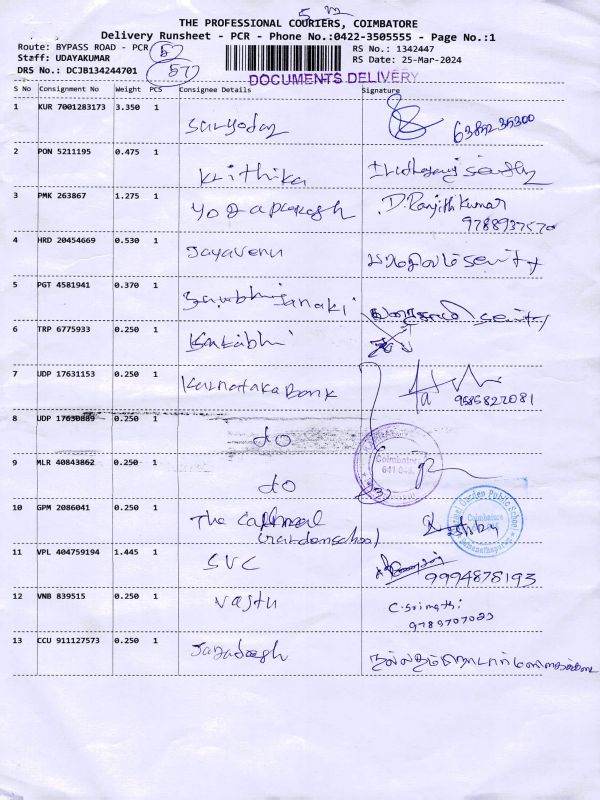 THE PROFESSIONAL COURIERS, COIMBATORE
Delivery Runsheet - PCR - Phone No.:0422-3505555 - Page No.:1
Route: BYPASS ROAD - PCR
RS No.: 1342447
Staff: UDAYAKUMAR
RS Date: 25-Mar-2024
DRS No.: DCJB134244701
57
DOCUMENTS DELIVERY
S No Consignment No Weight PCS Consignee Details Signature
1 KUR 7001283173 3.350 1 Suryoday
2 PON 5211195 0.475 1 Krithika
3 PMK 263867 1.275 1 Yogaprakash D. Ranjith Kumar
9788937570
4 HRD 20454669 0.530 1 Jayavenu
5 PGT 4581941 0.370 1
6 TRP 6775933 0.250 1
7 UDP 17631153 0.250 1 Karnataka Bank
9585822081
8 UDP 17630889 0.250 1 do
Coimbatore
9 MLR 40843862 0.250 1 do
10 GPM 2086041 0.250 1 The
Garden School
Garden Public School
Coimbatore
11 VPL 404759194 1.445 1 SVC 9994878193
12 VNB 839515 0.250 1 Vastu C. Srimathi
9789707023
13 CCU 911127573 0.250 1 Jagadesh